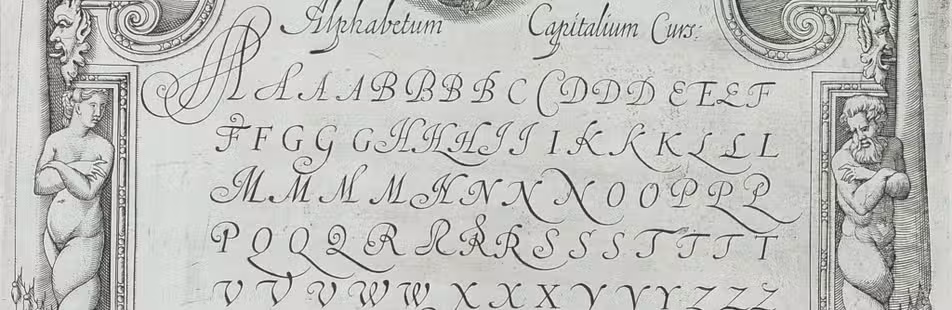 Alphabetum Capitalium Curs:
A A A A B B B B C C D D D E E E F
F F G G G H H H I I I K K K L L L
M M M M N N N N O O P P P
P Q Q Q R R R R S S S T T T T
V V V W W X X X Y Y Y Z Z Z